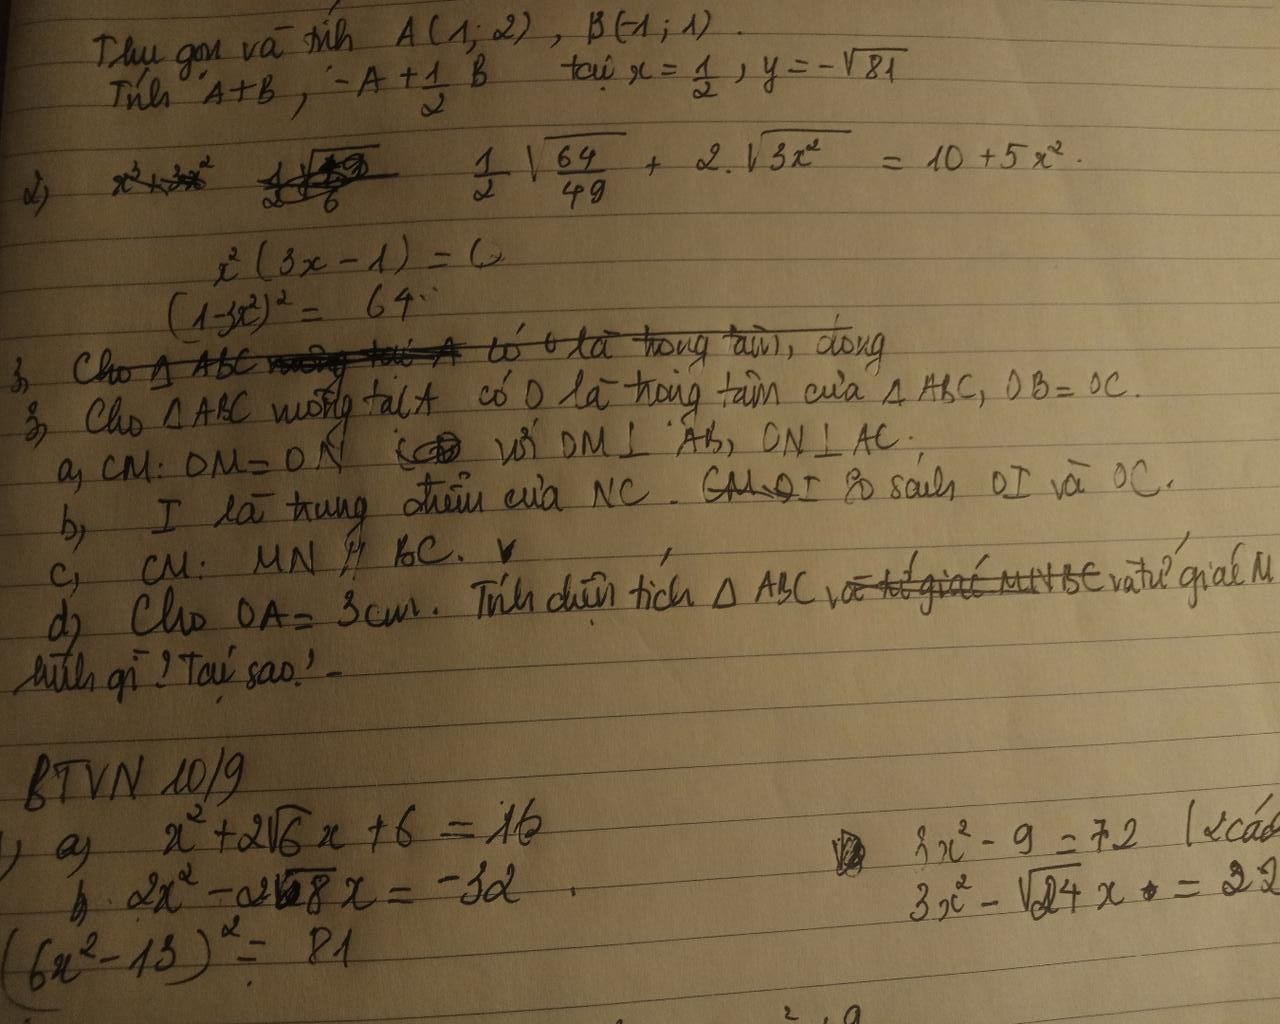 Thu gọn và tính A(1; 2), B(-1; 1).
Tính A+B, -A + 1/2 B tại x = 1/2, y = -√81
2) 1/2 √(64/49) + 2.√(3x²) = 10 + 5x².
x²(3x - 1) = 0
(1-3x²)² = 64.
3, Cho Δ ABC có là trọng tâm, đóng
3, Cho Δ ABC vuông tại A có O là trọng tâm của Δ ABC, OB = OC.
a, CM: OM = ON với OM ⊥ AB, ON ⊥ AC.
b, I là trung điểm của NC. So sánh OI và OC.
c, CM: MN // BC.
d, Cho OA = 3cm. Tính diện tích Δ ABC và tứ giác M
hình gì? Tại sao? -
BTVN 10/9
1) a, x² + 2√6 x + 6 = 16
3x² - 9 = 72 (2 các
b, 2x² - 2√8 x = -32.
3x² - √24 x = 22
(6x² - 13)² = 81